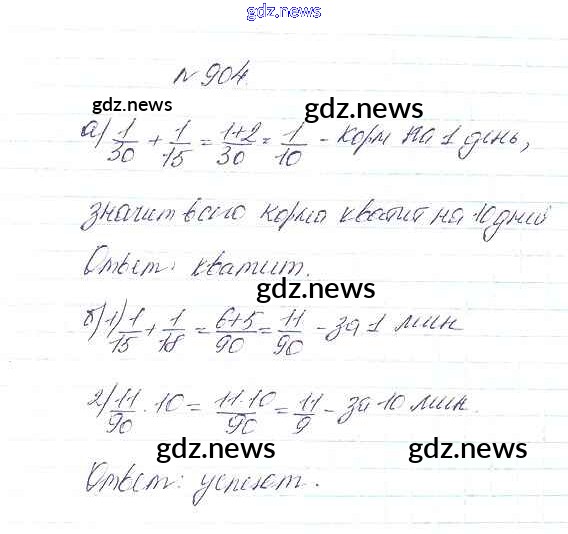 gdz.news
gdz.news
№ 904.
gdz.news
gdz.news
а) 1/30 + 1/15 = 1+2/30 = 1/10 - корм на 1 день,
значит всего корма хватит на 10 дней
Ответ: хватит.
gdz.news
б) 1) 1/15 + 1/18 = 6+5/90 = 11/90 - за 1 мин
2) 11/90 · 10 = 11·10/90 = 11/9 - за 10 мин.
gdz.news
gdz.news
Ответ: успеют.